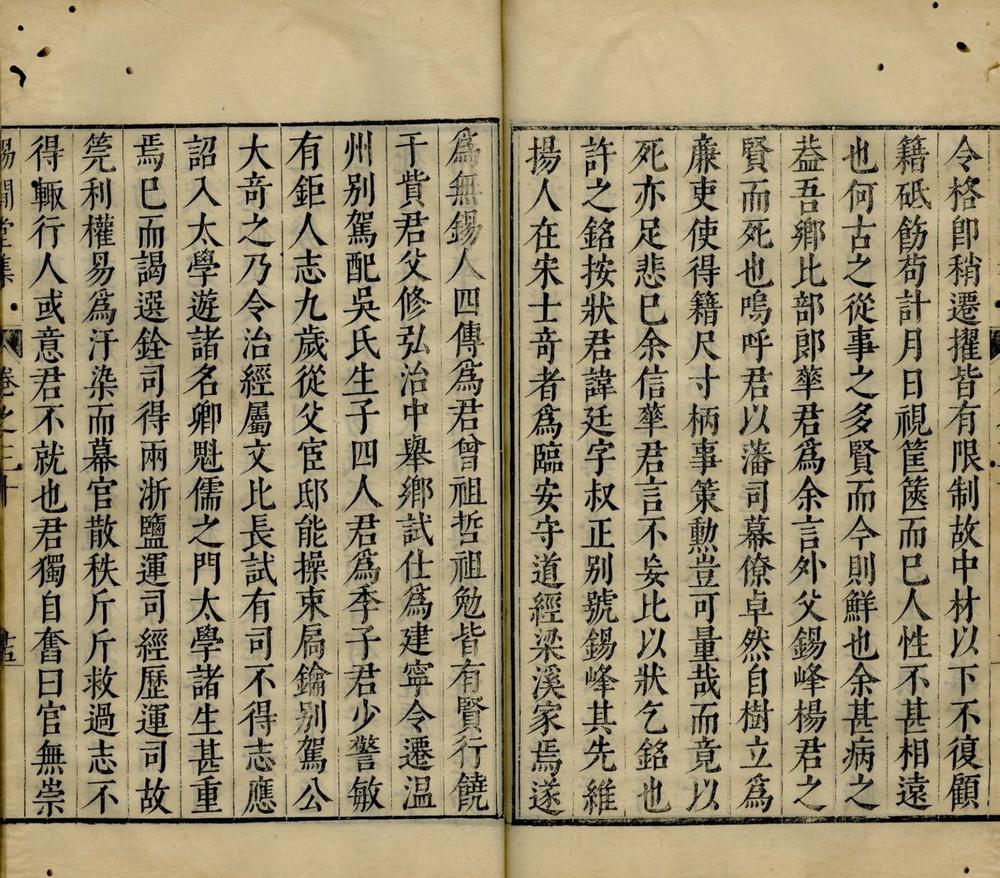 令格卽稍遷擢皆有限制故中材以下不復顧
籍砥飭茍計月日視筐篋而已人性不甚相遠
也何古之從事之多賢而今則鮮也余甚病之
葢吾鄉比部郞華君爲余言外父錫峰楊君之
賢而死也嗚呼君以藩司幕僚卓然自樹立爲
廉吏使得籍尺寸柄事策勲豈可量哉而竟以
死亦足悲已余信華君言不妄比以狀乞銘也
許之銘按狀君諱廷字叔正别號錫峰其先維
揚人在宋士竒者爲臨安守道經梁溪家焉遂
爲無錫人四傳爲君曾祖哲祖勉皆有賢行饒
于貲君父修弘治中舉鄉試仕爲建寧令遷温
州别駕配吳氏生子四人君爲季子君少警敏
有鉅人志九歲從父宦邸能操束扄鑰别駕公
大竒之乃令治經屬文比長試有司不得志應
詔入太學遊諸名卿魁儒之門太學諸生甚重
焉已而謁選銓司得兩浙鹽運司經歷運司故
筦利權易爲汙染而幕官散秩斤斤救過志不
得輙行人或意君不就也君獨自奮曰官無崇
錫閒堂集 卷之三十